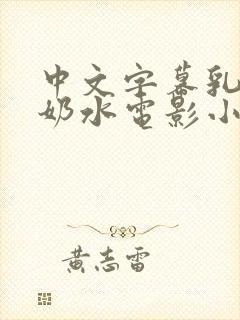 中文字幕乳
奶水电影小
黄志雷